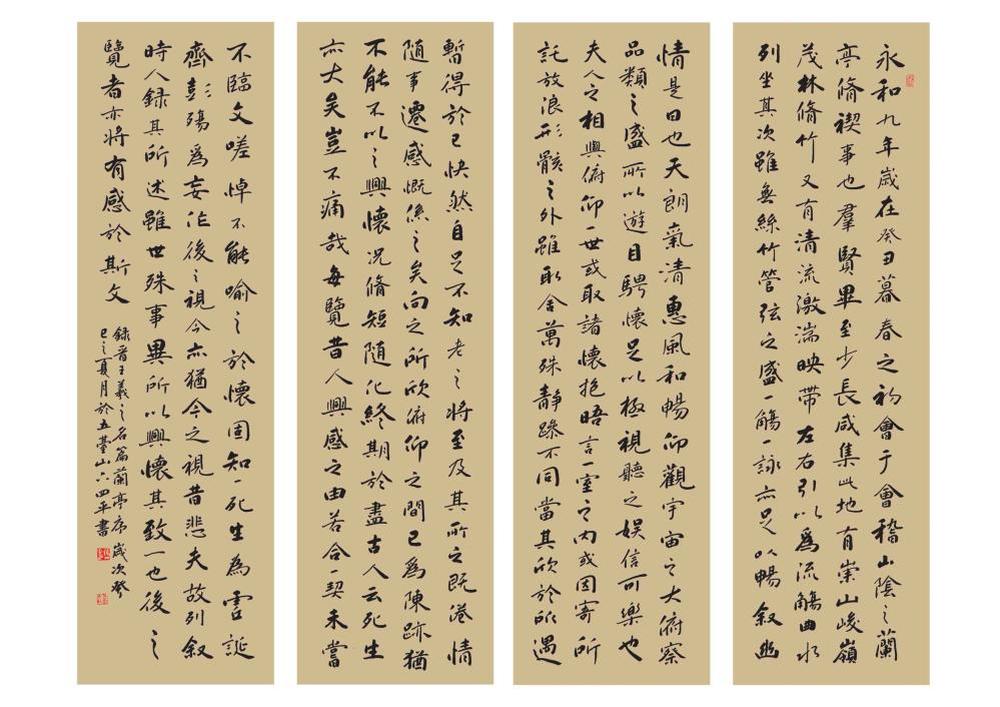 永和九年歲在癸丑暮春之初會于會稽山陰之蘭
亭脩禊事也羣賢畢至少長咸集此地有崇山峻嶺
茂林脩竹又有清流激湍映帶左右引以為流觴曲水
列坐其次雖無絲竹管弦之盛一觴一詠亦足以暢叙幽
情是日也天朗氣清惠風和暢仰觀宇宙之大俯察
品類之盛所以遊目騁懷足以極視聽之娛信可樂也
夫人之相與俯仰一世或取諸懷抱晤言一室之內或因寄所
託放浪形骸之外雖取舍萬殊靜躁不同當其欣於所遇
暫得於己快然自足不知老之將至及其所之既惓情
隨事遷感慨係之矣向之所欣俯仰之間已為陳跡猶
不能不以之興懷况脩短隨化終期於盡古人云死生
亦大矣豈不痛哉每覽昔人興感之由若合一契未嘗
不臨文嗟悼不能喻之於懷固知一死生為虛誕
齊彭殤為妄作後之視今亦猶今之視昔悲夫故列叙
時人録其所述雖世殊事異所以興懷其致一也後之
覽者亦將有感於斯文
錄晉王羲之名篇蘭亭序歲次癸
巳之夏月於五臺山六四平書